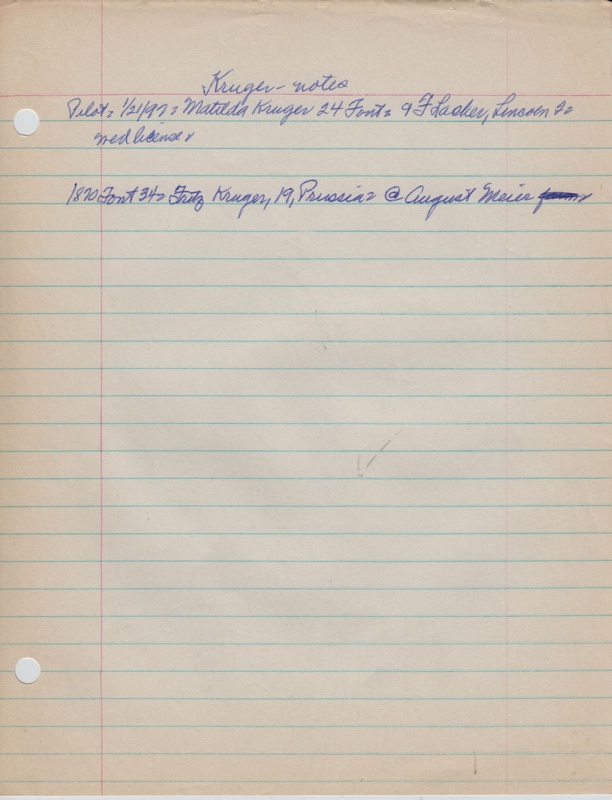 Kruger - notes
Pilot = 1/21/97 = Matilda Kruger 24 Font = & F Lasher, Lincoln Fo
wed license
1870 Font 34 = Fritz Kruger, 19, Prussia = @ August Meier